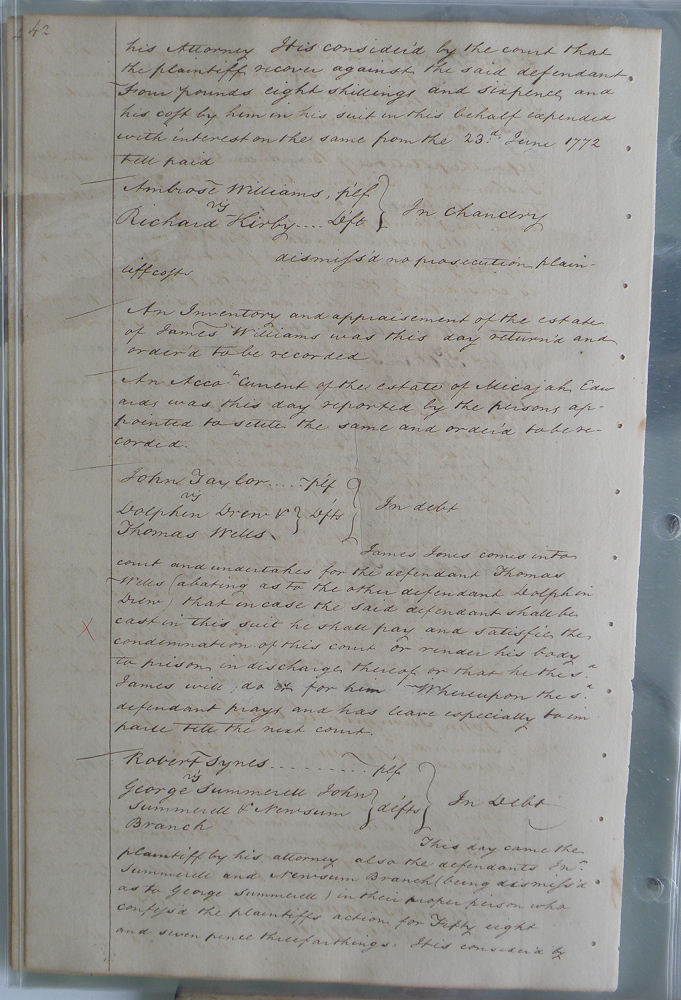 42
his Attorney It is consider'd by the court that
the plaintiff recover against the said defendant
Four pounds eight shillings and sixpence and
his cost by him in his suit in this behalf expended
with interest on the same from the 23.d June 1772
till paid
Ambrose Williams, plf
vs
Richard Kirby.... Dft } In Chancery
dismiss'd no prosecution plain-
tiff costs
An Inventory and appraisement of the estate
of James Williams was this day return'd and
order'd to be recorded
An Acco.t Current of the estate of Micajah Edw
ards was this day reported by the persons ap-
pointed to settle the same and order'd to be re-
corded.
John Taylor.... plf
vs
Dolphin Drew & } Dfts } In debt
Thomas Wells
James Jones comes into
court and undertakes for the defendant Thomas
Wells (abating as to the other defendant Dolphin
Drew) that in case the said defendant shall be
cast in this suit he shall pay and satisfie the
condemnation of this court or render his body
to prison in discharge thereof or that he the s.d
James will do it for him Whereupon the s.d
defendant prays and has leave especially to im
parle till the next court.
Robert Synes......... plf
vs
George Summerell John
Summerell & Newsum } defts } In Debt
Branch
This day came the
plaintiff by his attorney also the defendants Jn.o
Summerell and Newsum Branch (being dismiss'd
as to George Summerell) in their proper person who
confess'd the plaintiffs action for Fifty eight
and seven pence three farthings. It is consider'd by